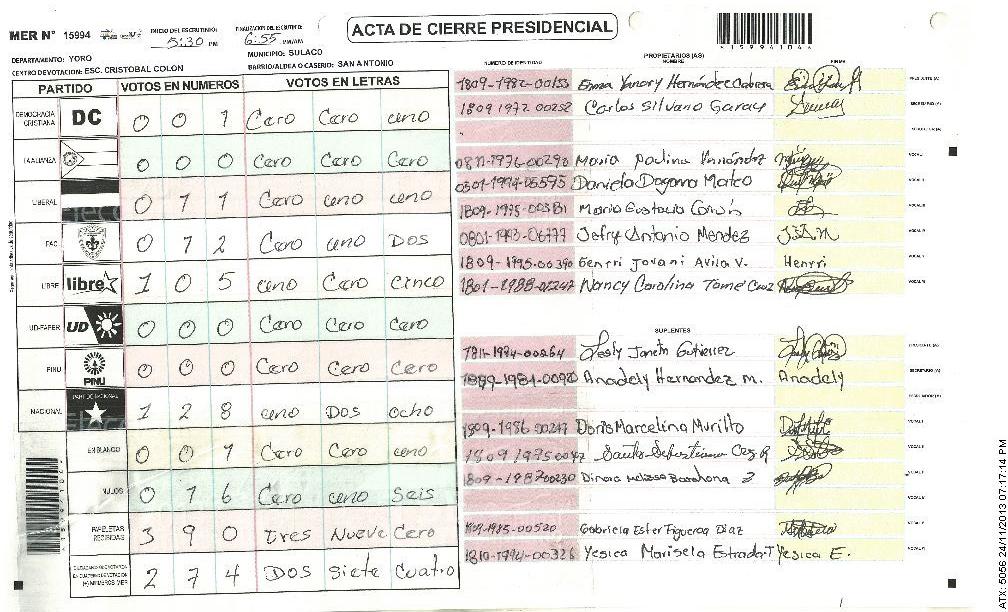 MER N° 15994
INICIO DEL ESCRUTINIO: 5:30 PM
FINALIZACION DEL ESCRUTINIO: 6:55 PM/AM
ACTA DE CIERRE PRESIDENCIAL
DEPARTAMENTO: YORO
MUNICIPIO: SULACO
CENTRO DE VOTACION: ESC. CRISTOBAL COLON
BARRIO/ALDEA O CASERIO: SAN ANTONIO
PARTIDO VOTOS EN NUMEROS VOTOS EN LETRAS
DEMOCRACIA CRISTIANA DC 0 0 1 Cero Cero uno
LA ALIANZA 0 0 0 Cero Cero Cero
LIBERAL 0 1 1 Cero uno uno
PAC 0 1 2 Cero uno Dos
LIBRE libre 1 0 5 uno Cero Cinco
UD-FAPER UD 0 0 0 Cero Cero Cero
PINU PINU 0 0 0 Cero Cero Cero
NACIONAL PARTIDO NACIONAL 1 2 8 uno Dos ocho
EN BLANCO 0 0 1 Cero Cero uno
NULOS 0 1 6 Cero uno Seis
PAPELETAS RECIBIDAS 3 9 0 tres Nueve Cero
2 7 4 DOS Siete Cuatro
NUMERO DE IDENTIDAD
PROPIETARIOS (AS)
NOMBRE
FIRMA
1809-1982-00153 Enma Yanory Hernández Cabrera
1809 1972 00252 Carlos Silvano Garay
Maria Paulina Hernández
0501-1994-05595 Daniela Dayana Mateo
1809-1995-00381 Mario Gustavo
0801-1993-06777 Jefry Antonio Mendez J.A.M
1809-1995-00390 Jovani Avila V. Henrri
1801-1988-01247 Nancy Carolina Tome Cruz
SUPLENTES
1811-1994-00264 Lesly Janeth Gutierrez
Anadely Hernandez M. Anadely
1809-1986-00247 Doris Marcelina Murillo
Santo Sebastian
1809-1987-00230
1809-1985-00520 Gabriela Ester Figueroa Diaz
1810-1994-00326 Yesica Marisela Estrada.T Yesica E.
ATX: 5056 24/11/2013 07:17:14 PM